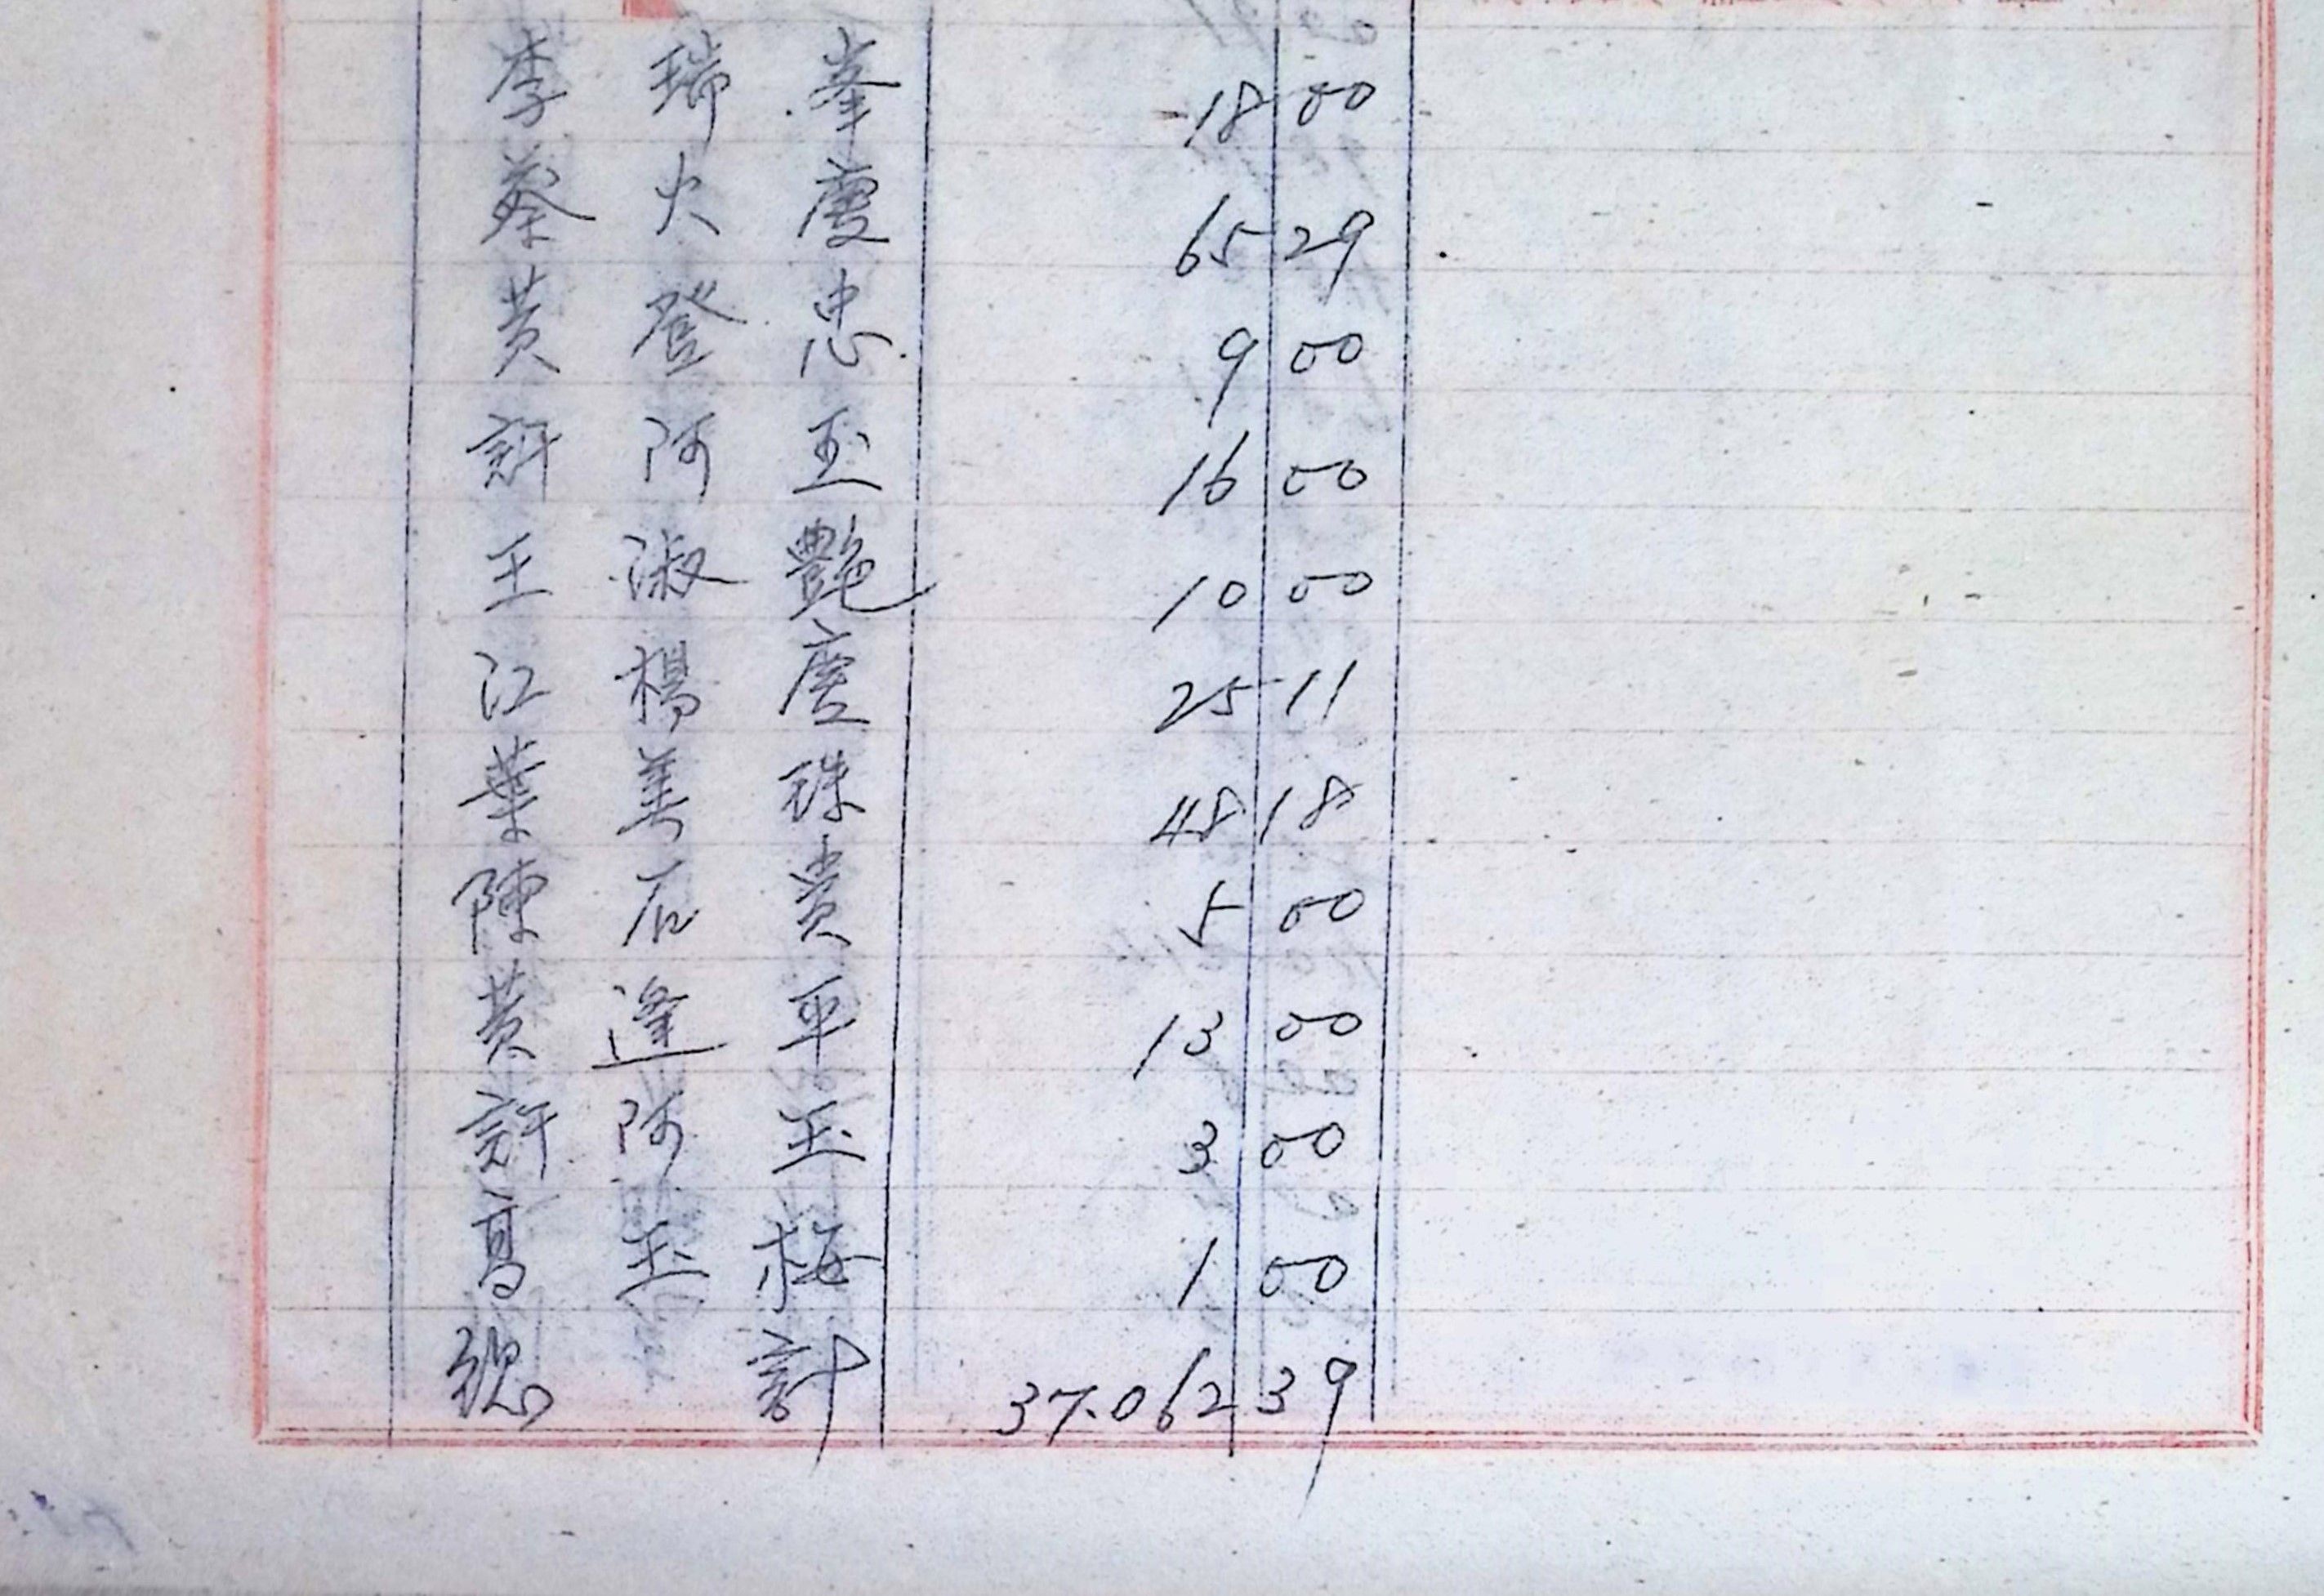 李瑞峯 18 00
蔡火慶 65 29
黃登忠 9 00
許阿玉 16 00
王淑艷 10 00
江楊慶 25 11
葉美珠 48 18
陳石貴 5 00
黃逢平 13 00
許阿玉 3 00
高玉梅 1 00
總計 37.062 39